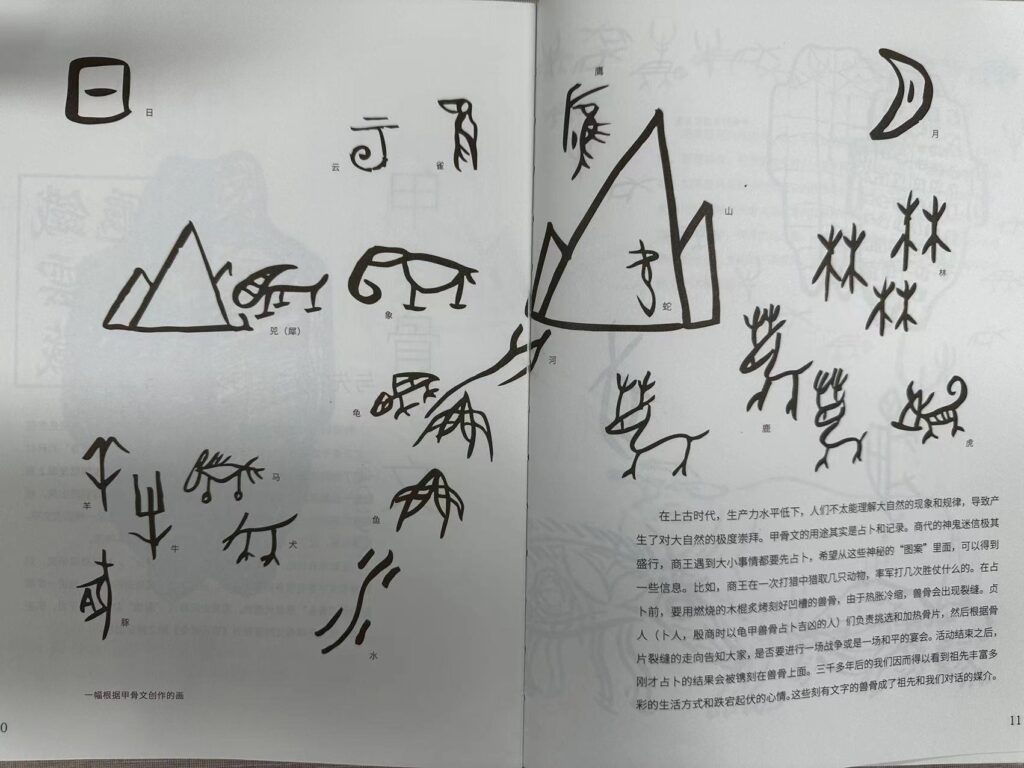 日
云
雀
兕（犀）
象
龟
羊
牛
马
犬
鱼
豚
水
一幅根据甲骨文创作的画
0
鹰
月
山
林
蛇
河
鹿
虎
在上古时代，生产力水平低下，人们不太能理解大自然的现象和规律，导致产
生了对大自然的极度崇拜。甲骨文的用途其实是占卜和记录。商代的神鬼迷信极其
盛行，商王遇到大小事情都要先占卜，希望从这些神秘的“图案”里面，可以得到
一些信息。比如，商王在一次打猎中猎取几只动物，率军打几次胜仗什么的。在占
卜前，要用燃烧的木棍炙烤刻好凹槽的兽骨，由于热胀冷缩，兽骨会出现裂缝。贞
人（卜人，殷商时以龟甲兽骨占卜吉凶的人）们负责挑选和加热骨片，然后根据骨
片裂缝的走向告知大家，是否要进行一场战争或是一场和平的宴会。活动结束之后，
刚才占卜的结果会被镌刻在兽骨上面。三千多年后的我们因而得以看到祖先丰富多
彩的生活方式和跌宕起伏的心情。这些刻有文字的兽骨成了祖先和我们对话的媒介。
11